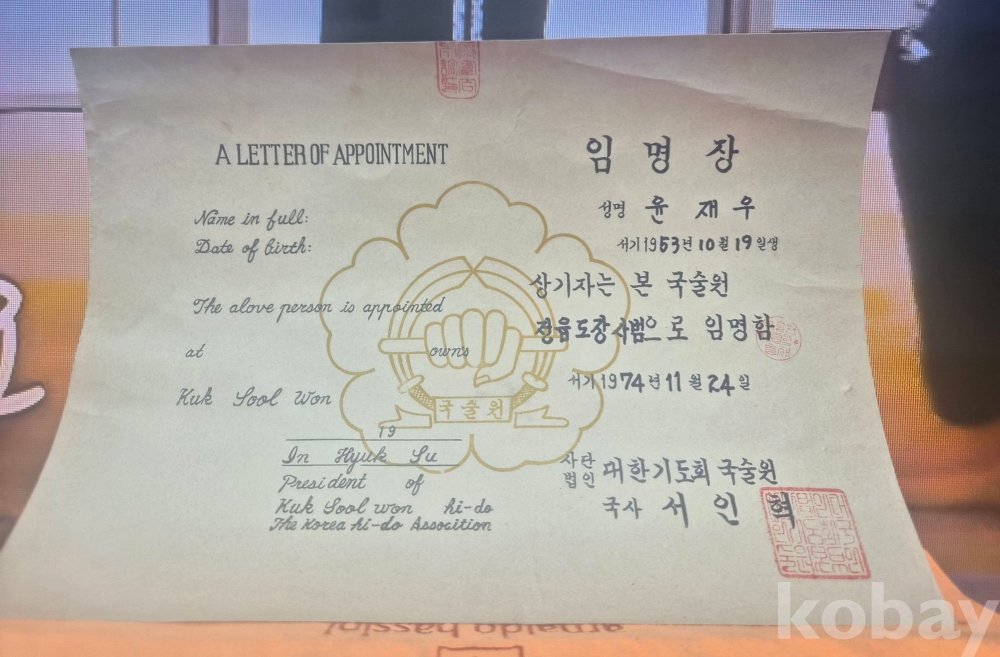 A LETTER OF APPOINTMENT
Name in full:
Date of birth:
The alove person is appointed
at owns
Kuk Sool Won
19
In Hyuk Su
President of
Kuk Sool won hi-do
The Korea hi-do Assocition
임명장
성명 윤재우
서기1953년10월19일생
상기자는 본 국술원
정읍도장사범으로 임명함
서기1974년11월24일
사단법인 대한기도회 국술원
국사 서인혁
국술원
kobay